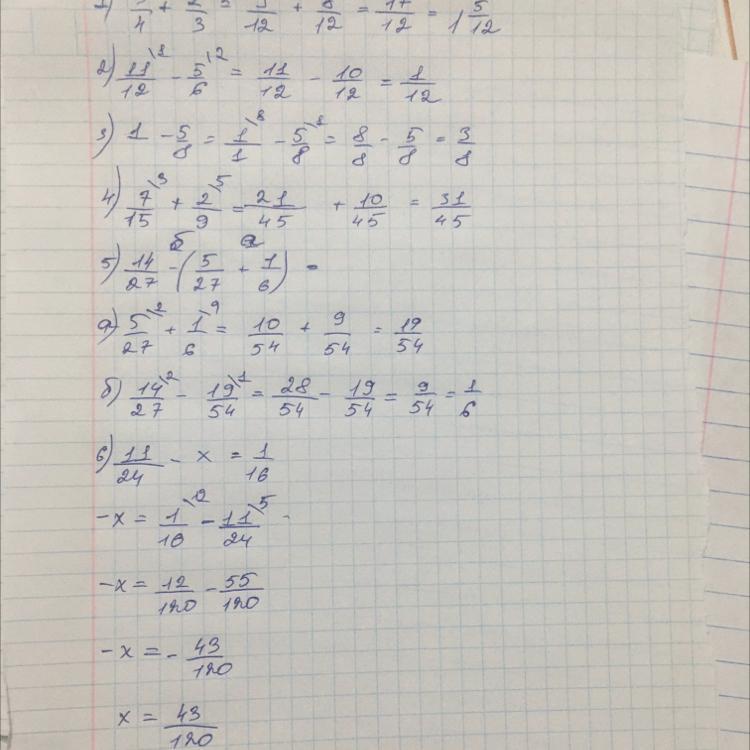 1) 3/4 + 2/3 = 9/12 + 8/12 = 17/12 = 1 5/12
2) 11/12 \1 - 5/6 \2 = 11/12 - 10/12 = 1/12
3) 1 - 5/8 = 1/1 \8 - 5/8 \1 = 8/8 - 5/8 = 3/8
4) 7/15 \3 + 2/9 \5 = 21/45 + 10/45 = 31/45
б а
5) 14/27 - (5/27 + 1/6) =
а) 5/27 \2 + 1/6 \9 = 10/54 + 9/54 = 19/54
б) 14/27 \2 - 19/54 \1 = 28/54 - 19/54 = 9/54 = 1/6
6) 11/24 - x = 1/16
-x = 1/10 \12 - 11/24 \5
-x = 12/120 - 55/120
-x = - 43/120
x = 43/120